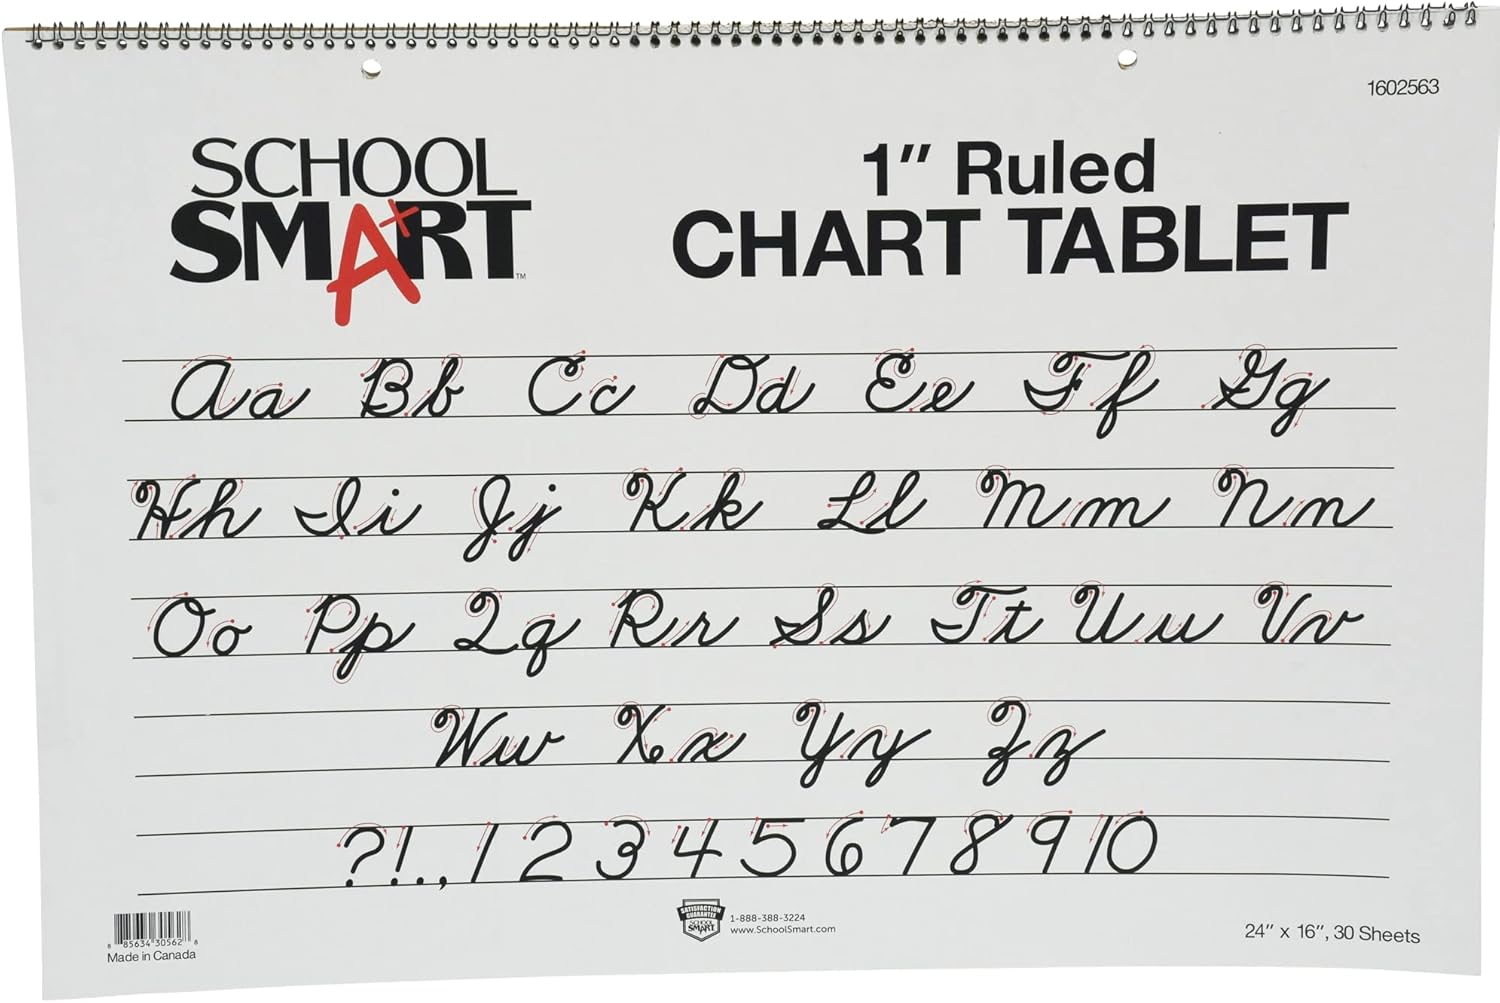 1602563
SCHOOL
SMART™
1" Ruled
CHART TABLET
Aa Bb Cc Dd Ee Ff Gg
Hh Ii Jj Kk Ll Mm Nn
Oo Pp Qq Rr Ss Tt Uu Vv
Ww Xx Yy Zz
?!., 1 2 3 4 5 6 7 8 9 10
8 85634 30562 8
Made in Canada
SATISFACTION
GUARANTEE
SCHOOL
SMART
1-888-388-3224
www.SchoolSmart.com
24" x 16", 30 Sheets